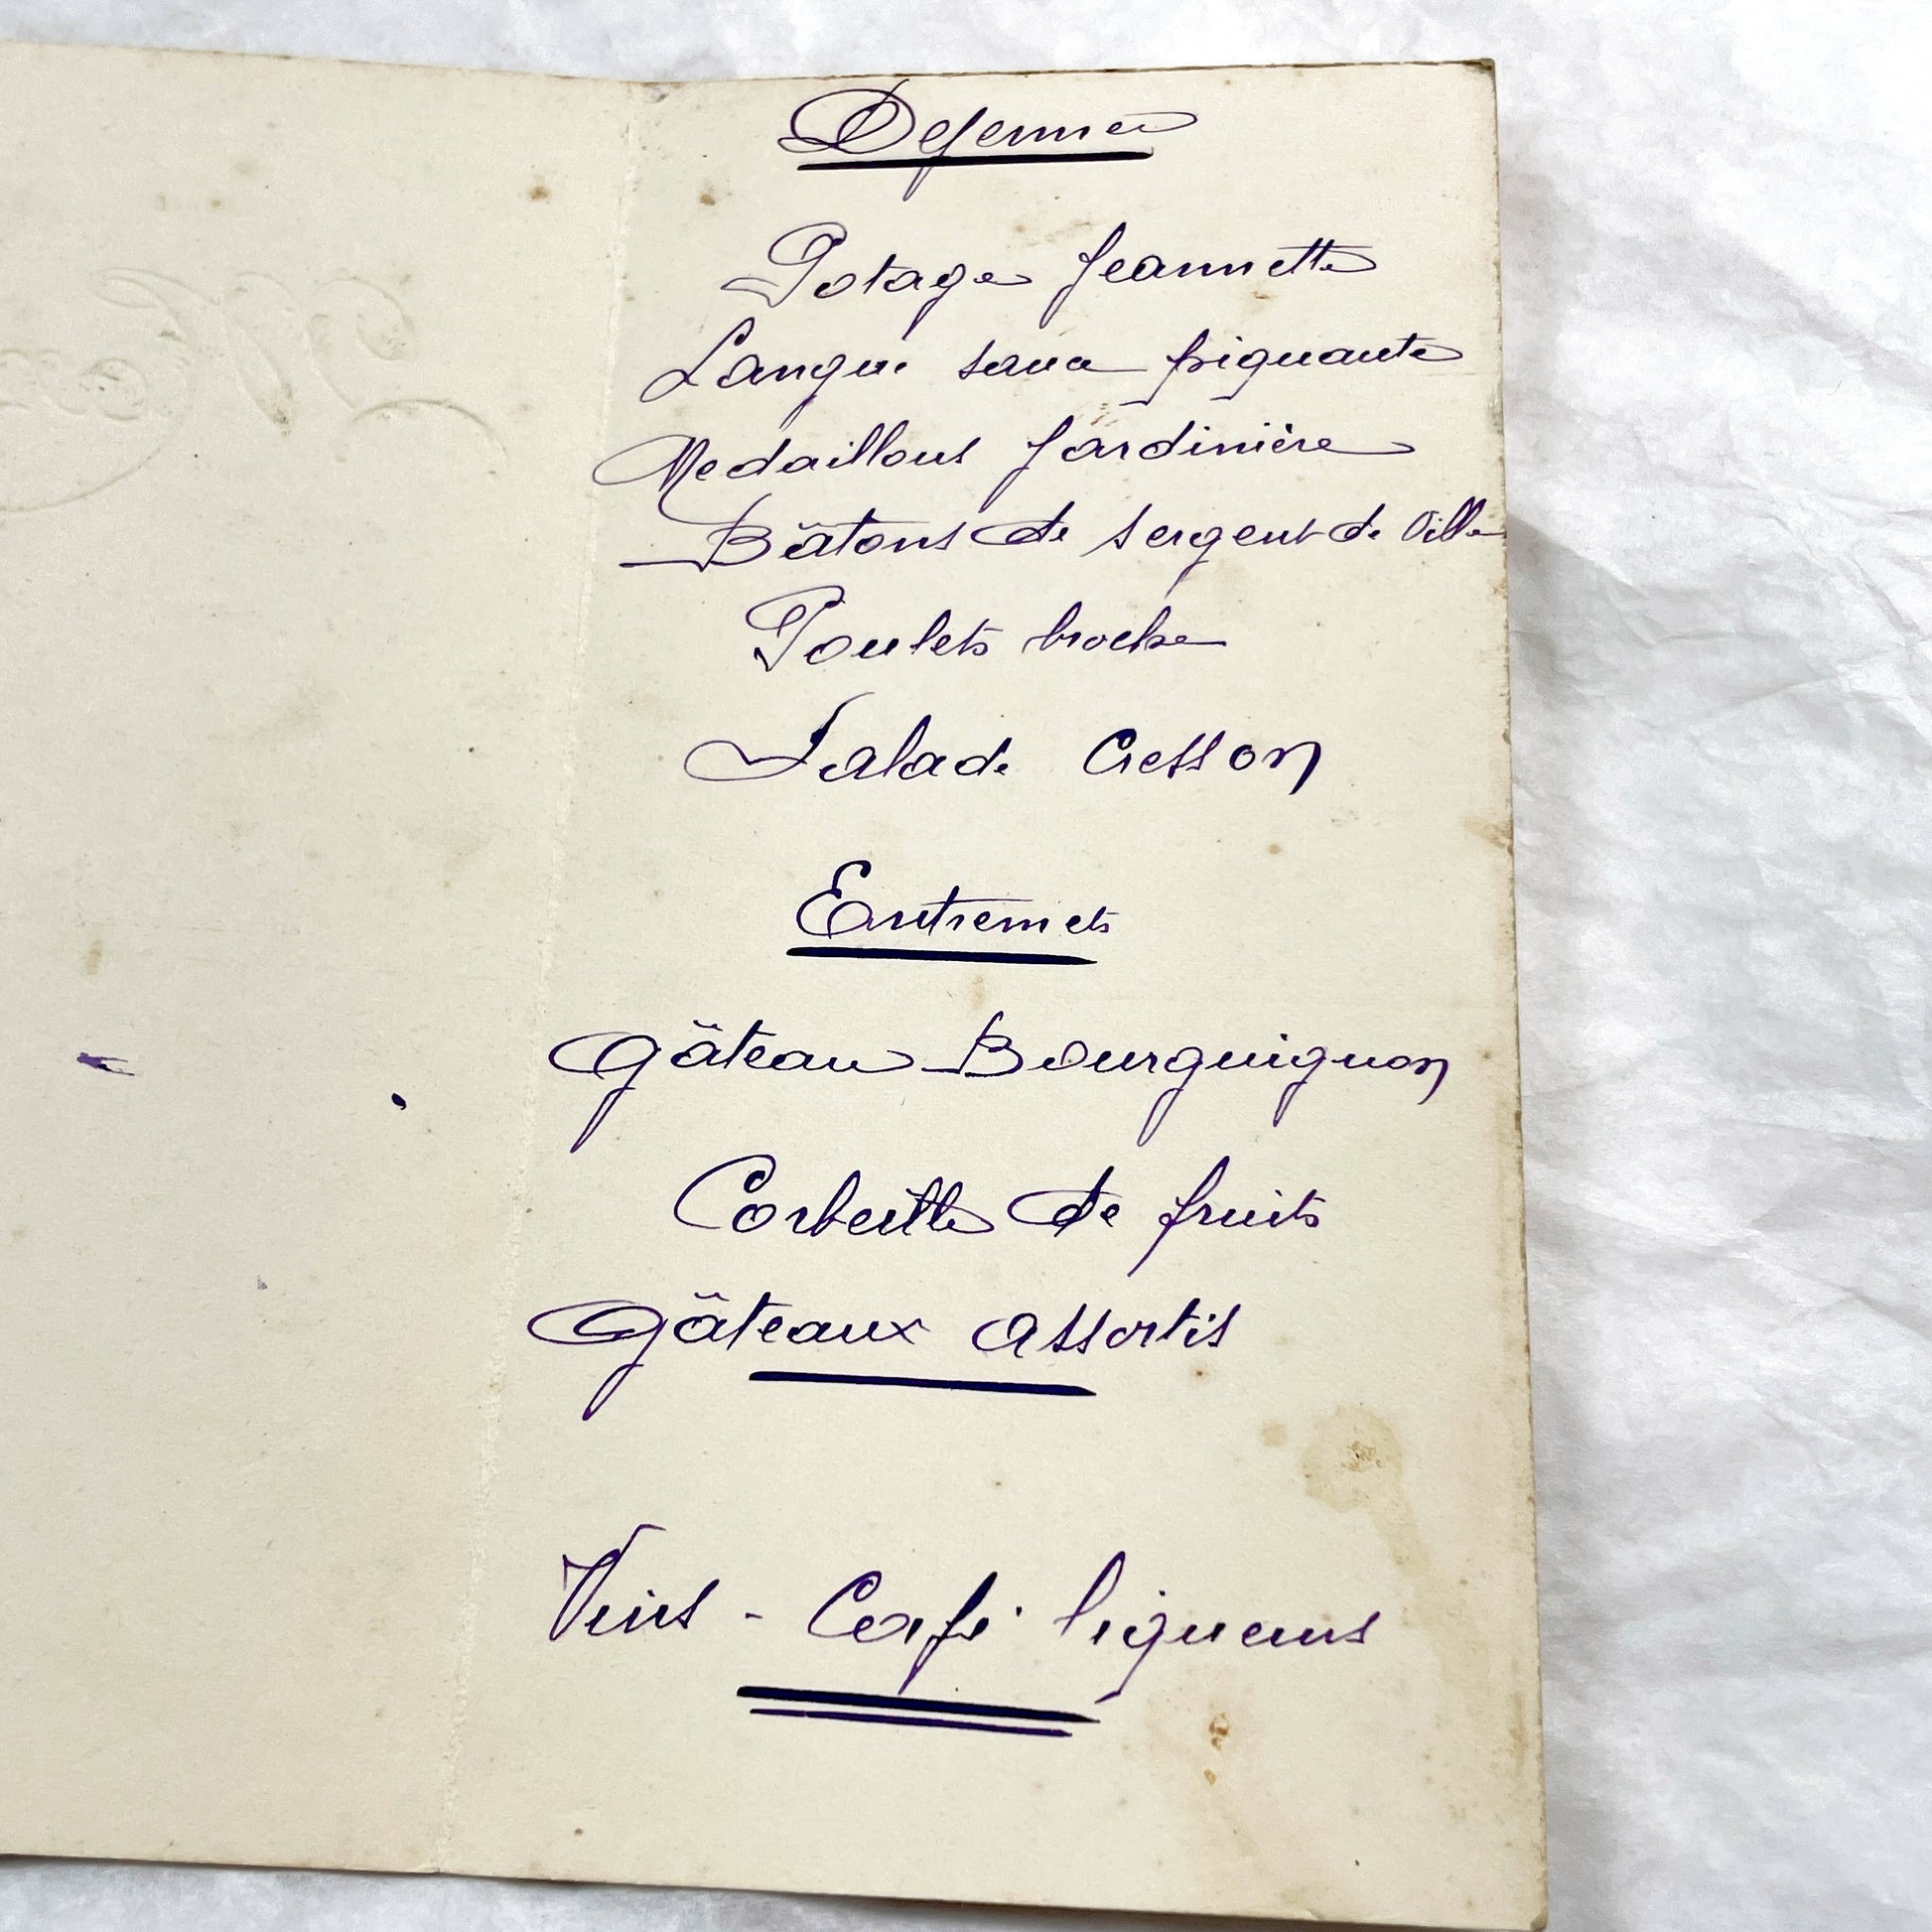 Dejeuner
Potage Jeannette
Langue sauce piquante
Medaillons Jardinière
Bâtons de sergent de Ville
Poulets broche
Salade Cresson
Entremets
Gâteau Bourguignon
Corbeille de fruits
Gâteaux assortis
Vins - Café liqueurs